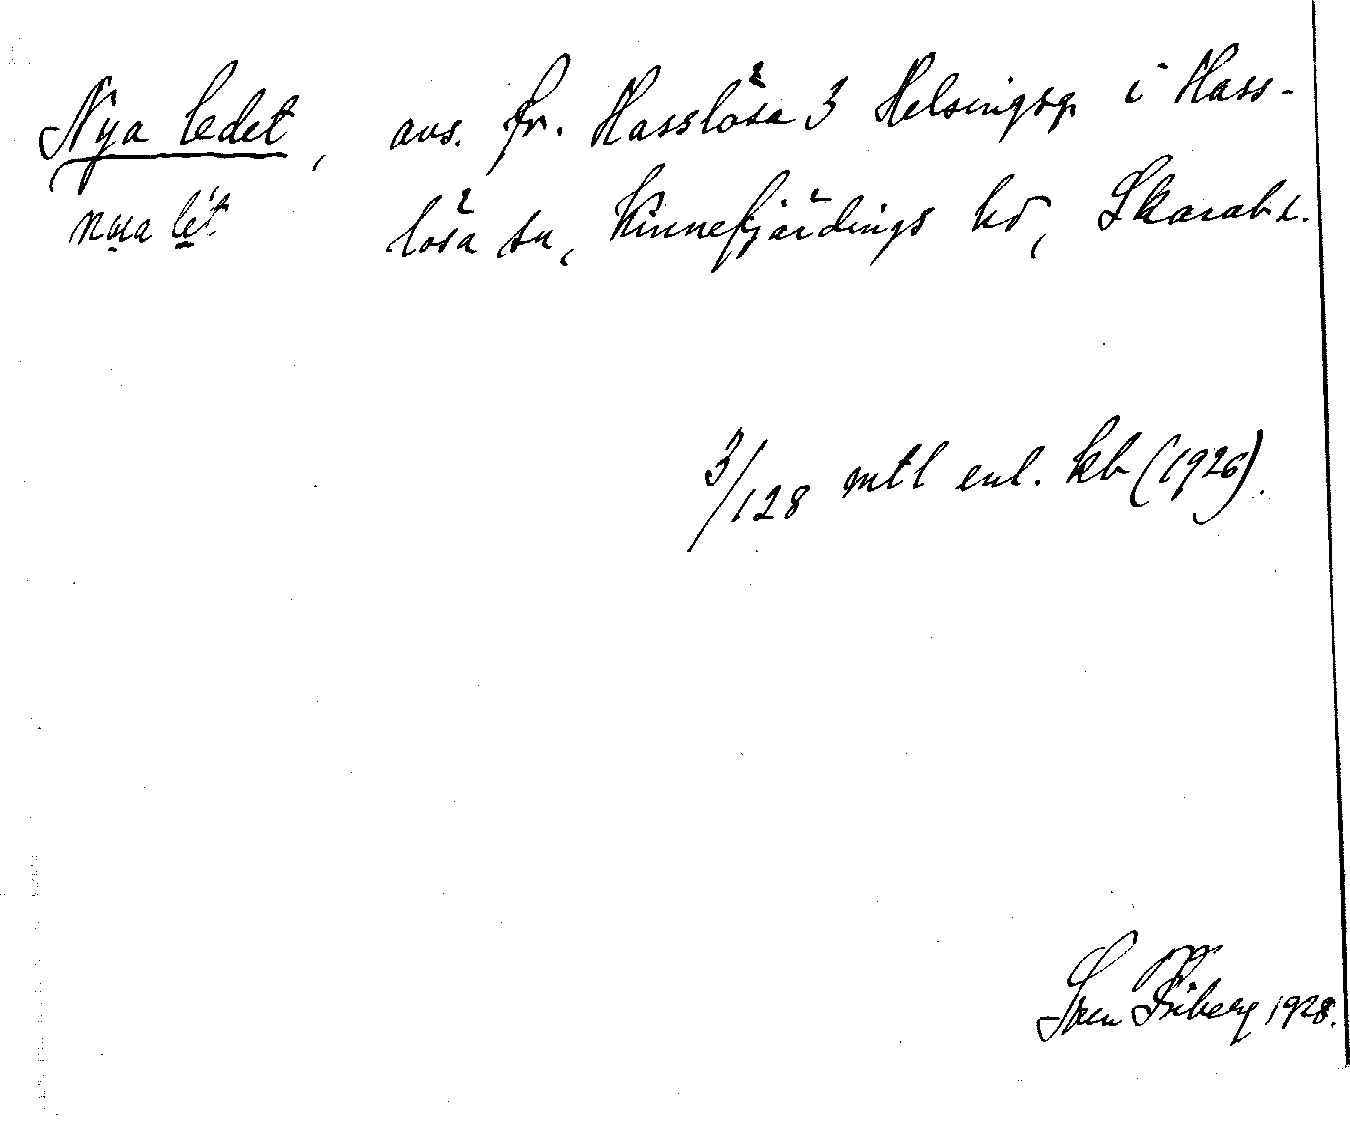 Nya ledet, avs. fr. Hasslösa 3 Helsingsg. i Hass-
nya lét lösa sn, Kinnefjärdings hd, Skarab. l.
3/128 mtl enl. kb (1926).
Sven Friberg 1928.